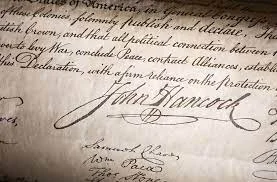 States of America, in General Congress
of these Colonies, solemnly publish and declare, That
British Crown, and that all political connection between
to levy War, conclude Peace, contract Alliances, establish
this Declaration, with a firm reliance on the Protection
John Hancock
Samuel Chase
Wm Paca
Thos Stone